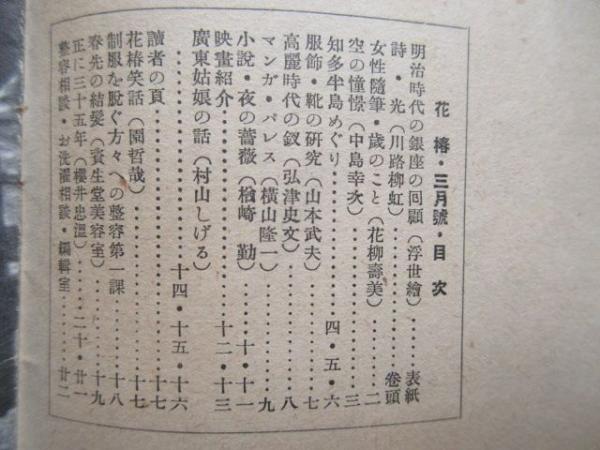 花椿・三月號・目次
明治時代の銀座の回顧(浮世繪)……表紙
詩・光(川路柳虹)……………卷頭
女性隨筆・歳のこと(花柳壽美)……二
空の憧憬(中島幸次)……………三
知多半島めぐり……………四・五・六
服飾・靴の研究(山本武夫)………七
高麗時代の釵(弘津史文)………八
マンガ・パレス(横山隆一)………九
小説・夜の薔薇(楢崎 勤)…十・十一
映畫紹介……………十二・十三
廣東姑娘の話(村山しげる)
……………十四・十五・十六
讀者の頁……………十七
花椿笑話(園哲哉)……………十七
制服を脱ぐ方々への整容第一課……十八
春先の結髪(資生堂美容室)………十九
正に三十五年(櫻井忠温)…二十・廿一
整容相談・お洗濯相談・編輯室……廿二